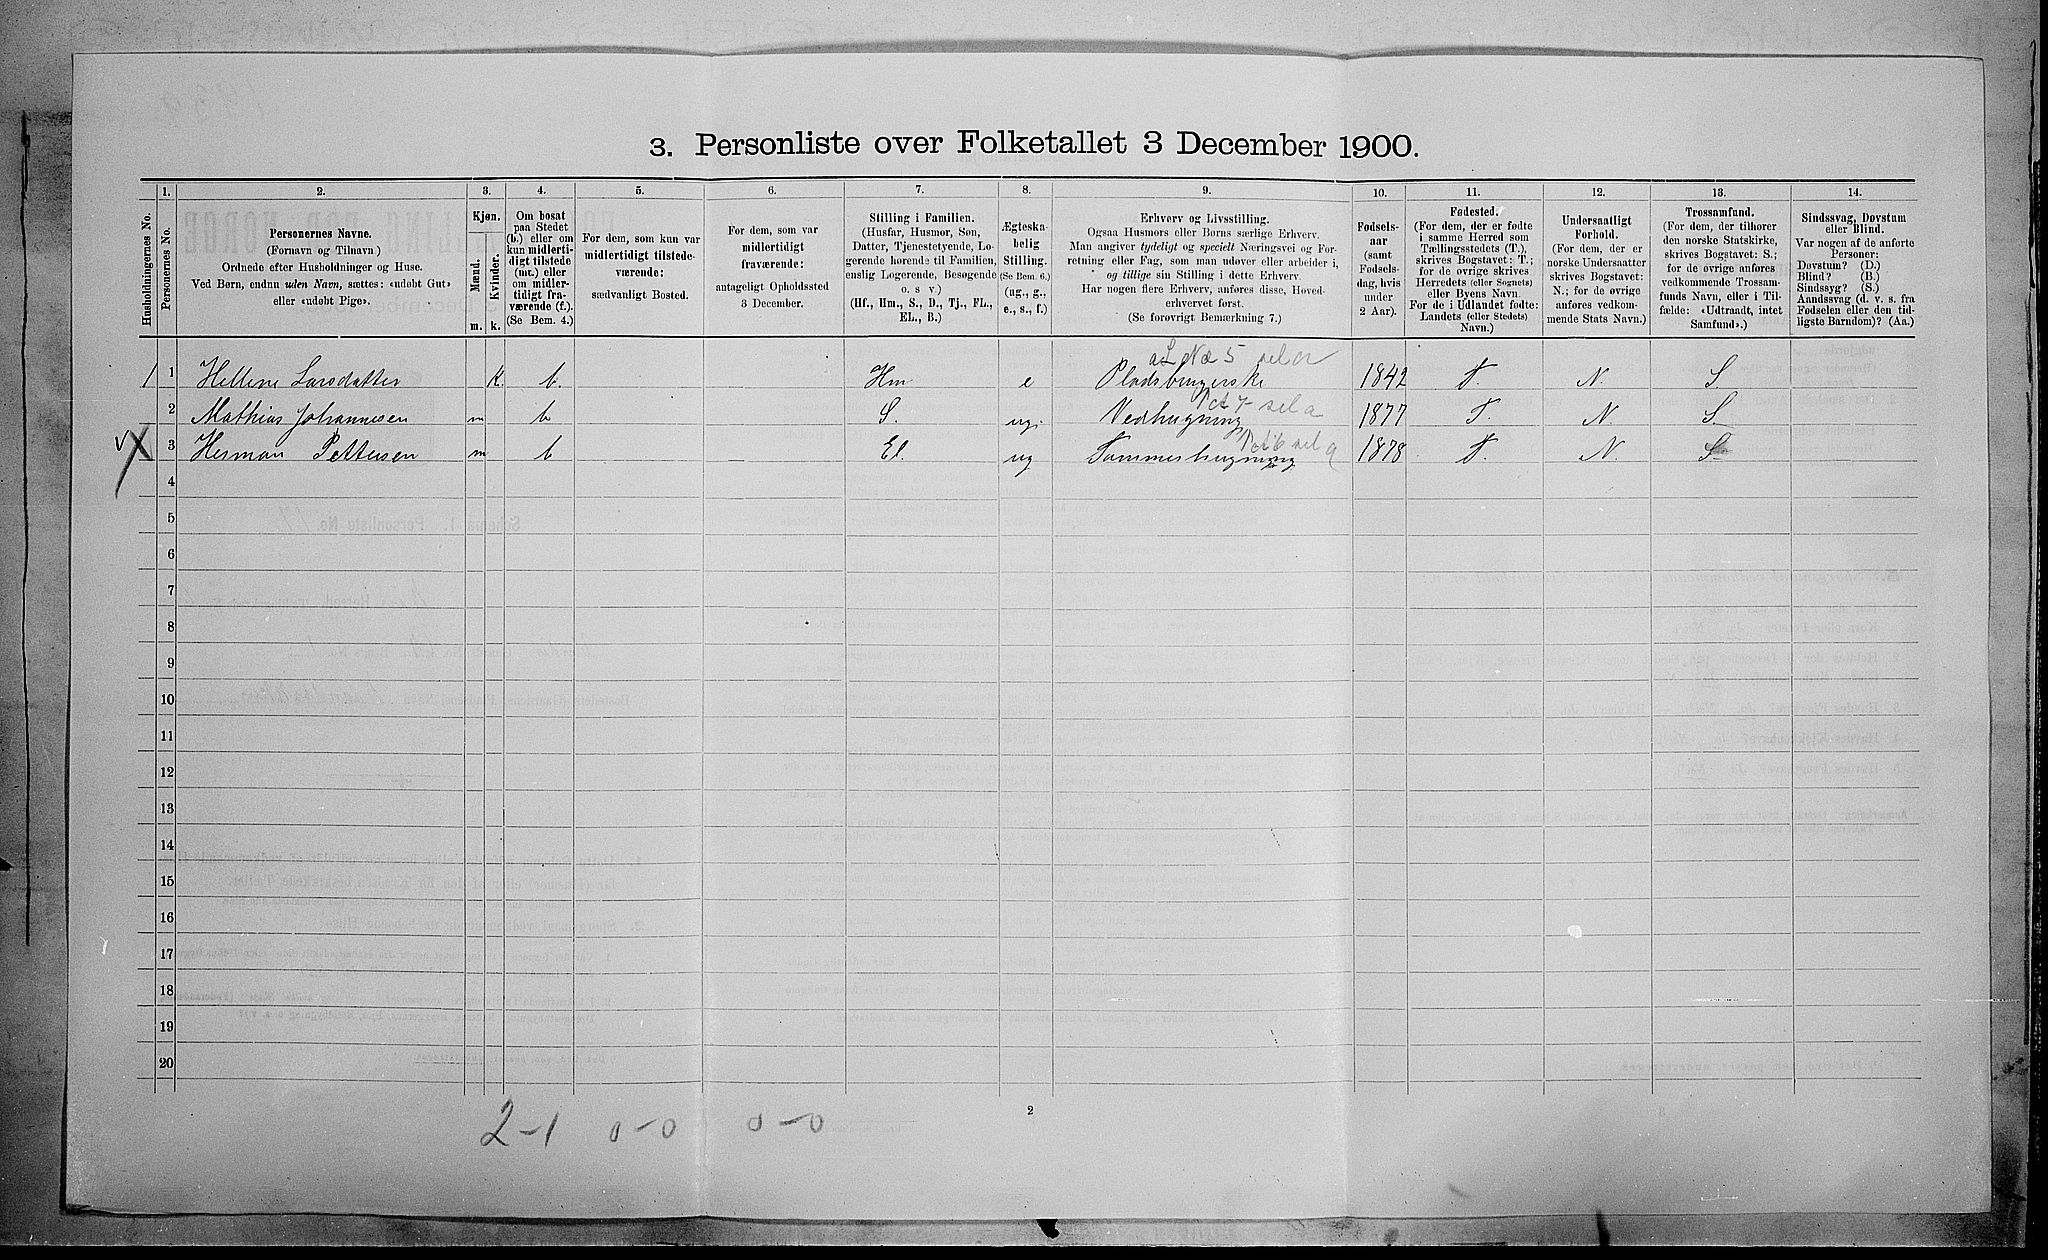 3. Personliste over Folketallet 3 December 1900.
1. 2. 3. 4. 5. 6. 7. 8. 9. 10. 11. 12. 13. 14.
Husholdningernes No.
Personernes No.
Personernes Navne.
(Fornavn og Tilnavn)
Ordnede efter Husholdninger og Huse.
Ved Børn, endnu uden Navn, sættes: «udøbt Gut»
eller «udøbt Pige».
Kjøn.
Mænd.
Kvinder.
m. k.
Om bosat
paa Stedet
(b.) eller om
kun midlerti-
digt tilstede
(mt.) eller
om midler-
tidigt fra-
værende (f.).
(Se Bem. 4.)
For dem, som kun var
midlertidigt tilstede-
værende:
sædvanligt Bosted.
For dem, som var
midlertidigt
fraværende:
antageligt Opholdssted
3 December.
Stilling i Familien.
(Husfar, Husmor, Søn,
Datter, Tjenestetyende, Lo-
gerende hørende til Familien,
enslig Logerende, Besøgende
o. s. v.)
(Hf., Hm., S., D., Tj., FL.,
EL., B.)
Ægteska-
belig
Stilling.
(Se Bem. 6.)
(ug., g.,
e., s., f.)
Erhverv og Livsstilling.
Ogsaa Husmors eller Børns særlige Erhverv.
Man angiver tydeligt og specielt Næringsvei og For-
retning eller Fag, som man udøver eller arbeider i,
og tillige sin Stilling i dette Erhverv.
Har nogen flere Erhverv, anføres disse, Hoved-
erhvervet først.
(Se forøvrigt Bemærkning 7.)
Fødsels-
aar
(samt
Fødsels-
dag, hvis
under
2 Aar).
Fødested.
(For dem, der er fødte
i samme Herred som
Tællingsstedets (T.),
skrives Bogstavet: T.;
for de øvrige skrives
Herredets (eller Sognets)
eller Byens Navn.
For de i Udlandet fødte:
Landets (eller Stedets)
Navn.)
Undersaatligt
Forhold.
(For dem, der er
norske Undersaatter
skrives Bogstavet:
N.; for de øvrige
anføres vedkom-
mende Stats Navn.)
Trossamfund.
(For dem, der tilhører
den norske Statskirke,
skrives Bogstavet: S.;
for de øvrige anføres
vedkommende Trossam-
funds Navn, eller i Til-
fælde: «Udtraadt, intet
Samfund».)
Sindssvag, Døvstum
eller Blind.
Var nogen af de anførte
Personer:
Døvstum? (D.)
Blind? (B.)
Sindssyg? (S.)
Aandssvag (d. v. s. fra
Fødselen eller den tid-
ligste Barndom)? (Aa.)
1 1 Hellene Larsdatter K. b. Hm e Pladsbrugerske 1842 T. N. S
2 Mathias Johannesen m b S. ug. Vedhugning 1877 T. N. S.
3 Herman Pettersen m b El. ug Tømmerhugning 1878 T. N. S
4
5
6
7
8
9
10
11
12
13
14
15
16
17
18
19
20
2
2-1 0-0 0-0